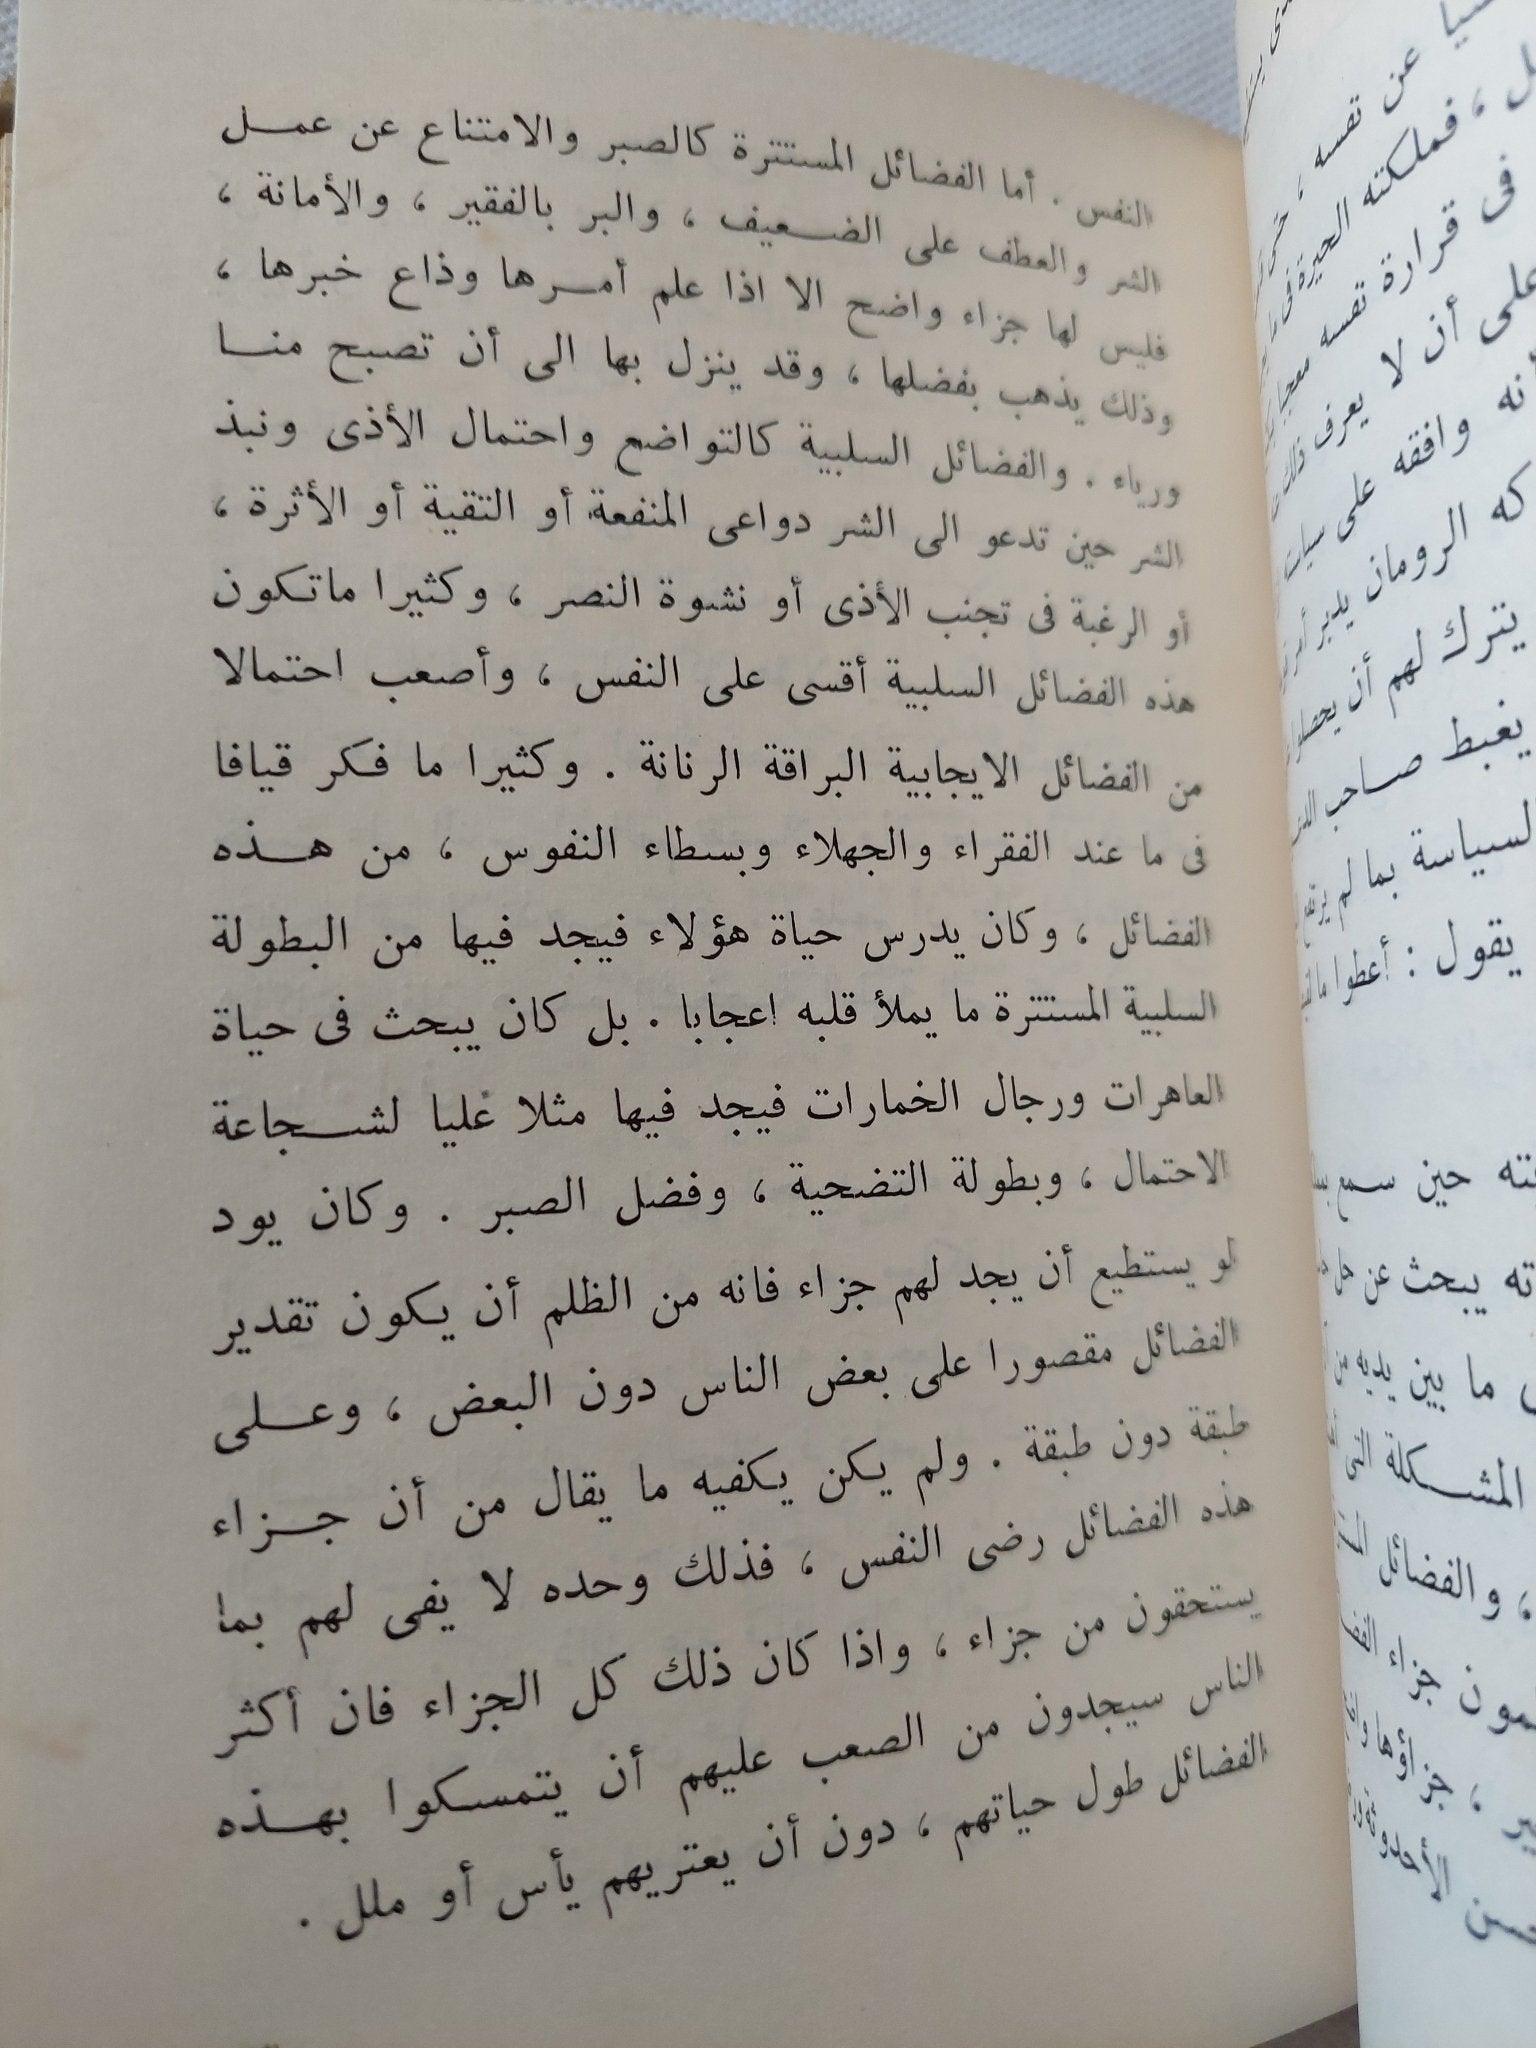 النفس . أما الفضائل المستترة كالصبر والامتناع عن عمل
الشر والعطف على الضعيف ، والبر بالفقير ، والأمانة ،
فليس لها جزاء واضح الا اذا علم أمرها وذاع خبرها ،
وذلك يذهب بفضلها ، وقد ينزل بها الى أن تصبح منا
ورياء . والفضائل السلبية كالتواضع واحتمال الأذى ونبذ
الشر حين تدعو الى الشر دواعى المنفعة أو التقية أو الأثرة ،
أو الرغبة فى تجنب الأذى أو نشوة النصر ، وكثيرا ماتكون
هذه الفضائل السلبية أقسى على النفس ، وأصعب احتمالا
من الفضائل الايجابية البراقة الرنانة . وكثيرا ما فكر قيافا
فى ما عند الفقراء والجهلاء وبسطاء النفوس ، من هذه
الفضائل ، وكان يدرس حياة هؤلاء فيجد فيها من البطولة
السلبية المستترة ما يملأ قلبه اعجابا . بل كان يبحث فى حياة
العاهرات ورجال الخمارات فيجد فيها مثلا عليا لشجاعة
الاحتمال ، وبطولة التضحية ، وفضل الصبر . وكان يود
لو يستطيع أن يجد لهم جزاء فانه من الظلم أن يكون تقدير
الفضائل مقصورا على بعض الناس دون البعض ، وعلى
طبقة دون طبقة . ولم يكن يكفيه ما يقال من أن جزاء
هذه الفضائل رضى النفس ، فذلك وحده لا يفى لهم بما
يستحقون من جزاء ، واذا كان ذلك كل الجزاء فان أكثر
الناس سيجدون من الصعب عليهم أن يتمسكوا بهذه
الفضائل طول حياتهم ، دون أن يعتريهم يأس أو ملل .
عن نفسه ،
، فملكته الحيرة فى
فى قرارة نفسه
على أن لا يعرف ذلك
وافقه على
الرومان يدبر
يترك لهم أن
يغبط صاحب
بما لم
يقول : أعطوا
حين سمع
يبحث عن حل
ما بين يديه من
المشكلة التى
، والفضائل
جزاء
، جزاؤها